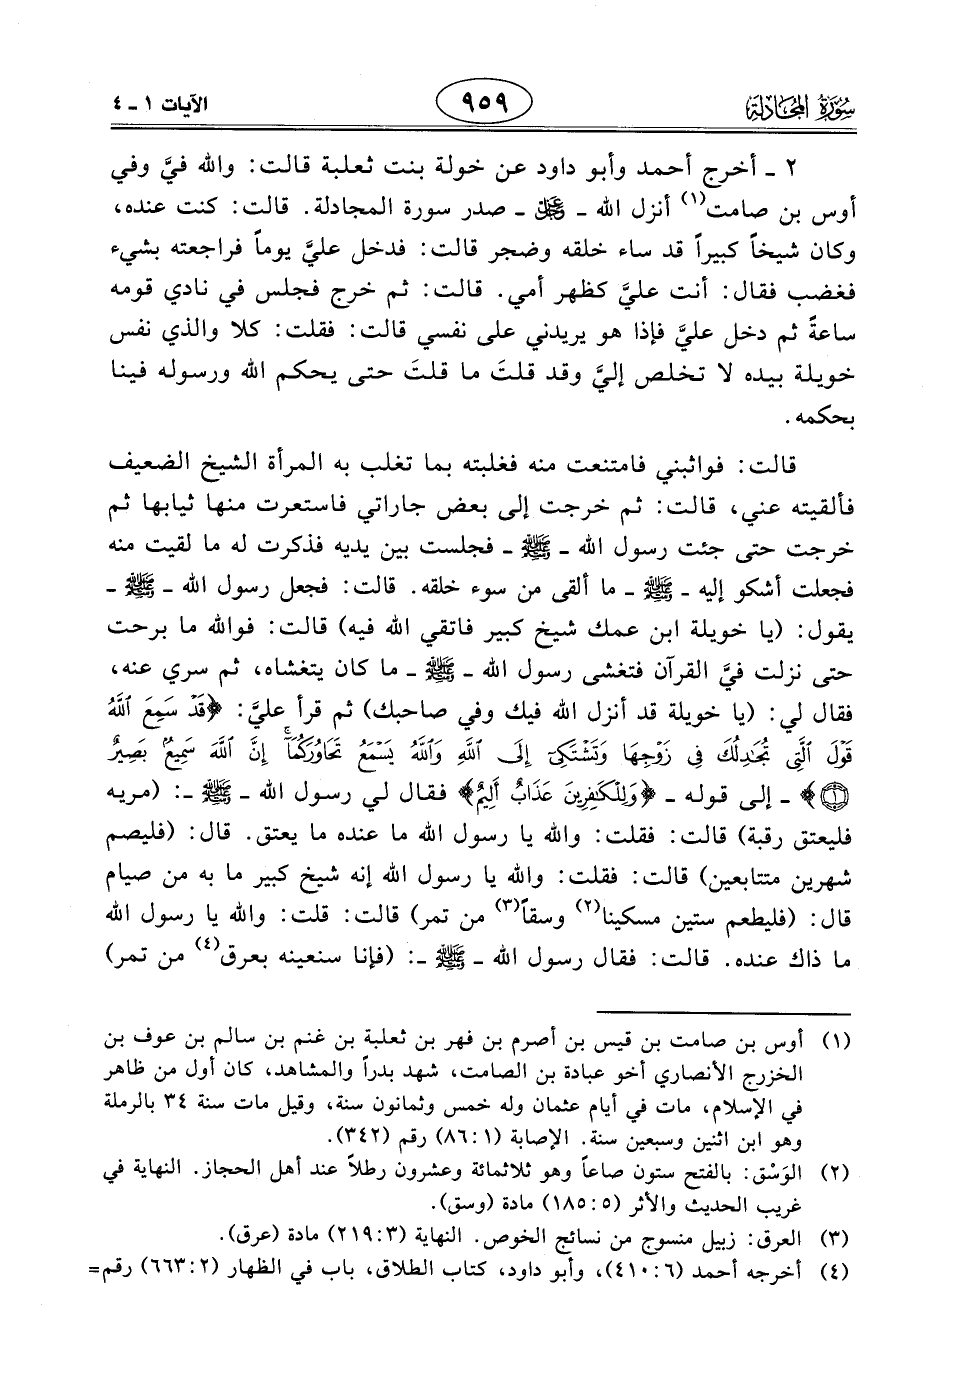 سورة المجادلة ٩٥٩ الآيات ١ ـ ٤
٢ ـ أخرج أحمد وأبو داود عن خولة بنت ثعلبة قالت: والله فيَّ وفي
أوس بن صامت(١) أنزل الله ـ عز وجل ـ صدر سورة المجادلة. قالت: كنت عنده،
وكان شيخاً كبيراً قد ساء خلقه وضجر قالت: فدخل عليَّ يوماً فراجعته بشيء
فغضب فقال: أنت عليَّ كظهر أمي. قالت: ثم خرج فجلس في نادي قومه
ساعةً ثم دخل عليَّ فإذا هو يريدني على نفسي قالت: فقلت: كلا والذي نفس
خويلة بيده لا تخلص إليَّ وقد قلتَ ما قلتَ حتى يحكم الله ورسوله فينا
بحكمه.
قالت: فواثبني فامتنعت منه فغلبته بما تغلب به المرأة الشيخ الضعيف
فألقيته عني، قالت: ثم خرجت إلى بعض جاراتي فاستعرت منها ثيابها ثم
خرجت حتى جئت رسول الله ـ ﷺ ـ فجلست بين يديه فذكرت له ما لقيت منه
فجعلت أشكو إليه ـ ﷺ ـ ما ألقى من سوء خلقه. قالت: فجعل رسول الله ـ ﷺ ـ
يقول: (يا خويلة ابن عمك شيخ كبير فاتقي الله فيه) قالت: فوالله ما برحت
حتى نزلت فيَّ القرآن فتغشى رسول الله ـ ﷺ ـ ما كان يتغشاه، ثم سري عنه،
فقال لي: (يا خويلة قد أنزل الله فيك وفي صاحبك) ثم قرأ عليَّ: ﴿قَدْ سَمِعَ ٱللَّهُ
قَوْلَ ٱلَّتِي تُجَٰدِلُكَ فِي زَوْجِهَا وَتَشْتَكِىٓ إِلَى ٱللَّهِ وَٱللَّهُ يَسْمَعُ تَحَاوُرَكُمَآ ۚ إِنَّ ٱللَّهَ سَمِيعٌۢ بَصِيرٌ
١﴾ ـ إلى قوله ـ ﴿وَلِلْكَٰفِرِينَ عَذَابٌ أَلِيمٌ﴾ فقال لي رسول الله ـ ﷺ ـ: (مريه
فليعتق رقبة) قالت: فقلت: والله يا رسول الله ما عنده ما يعتق. قال: (فليصم
شهرين متتابعين) قالت: فقلت: والله يا رسول الله إنه شيخ كبير ما به من صيام
قال: (فليطعم ستين مسكينا(٢) وسقاً(٣) من تمر) قالت: قلت: والله يا رسول الله
ما ذاك عنده. قالت: فقال رسول الله ـ ﷺ ـ: (فإنا سنعينه بعرق(٤) من تمر)
(١) أوس بن صامت بن قيس بن أصرم بن فهر بن ثعلبة بن غنم بن سالم بن عوف بن
الخزرج الأنصاري أخو عبادة بن الصامت، شهد بدراً والمشاهد، كان أول من ظاهر
في الإسلام، مات في أيام عثمان وله خمس وثمانون سنة، وقيل مات سنة ٣٤ بالرملة
وهو ابن اثنين وسبعين سنة. الإصابة (٨٦:١) رقم (٣٤٢).
(٢) الوَسْق: بالفتح ستون صاعاً وهو ثلاثمائة وعشرون رطلاً عند أهل الحجاز. النهاية في
غريب الحديث والأثر (١٨٥:٥) مادة (وسق).
(٣) العرق: زبيل منسوج من نسائج الخوص. النهاية (٢١٩:٣) مادة (عرق).
(٤) أخرجه أحمد (٤١٠:٦)، وأبو داود، كتاب الطلاق، باب في الظهار (٦٦٣:٢) رقم=